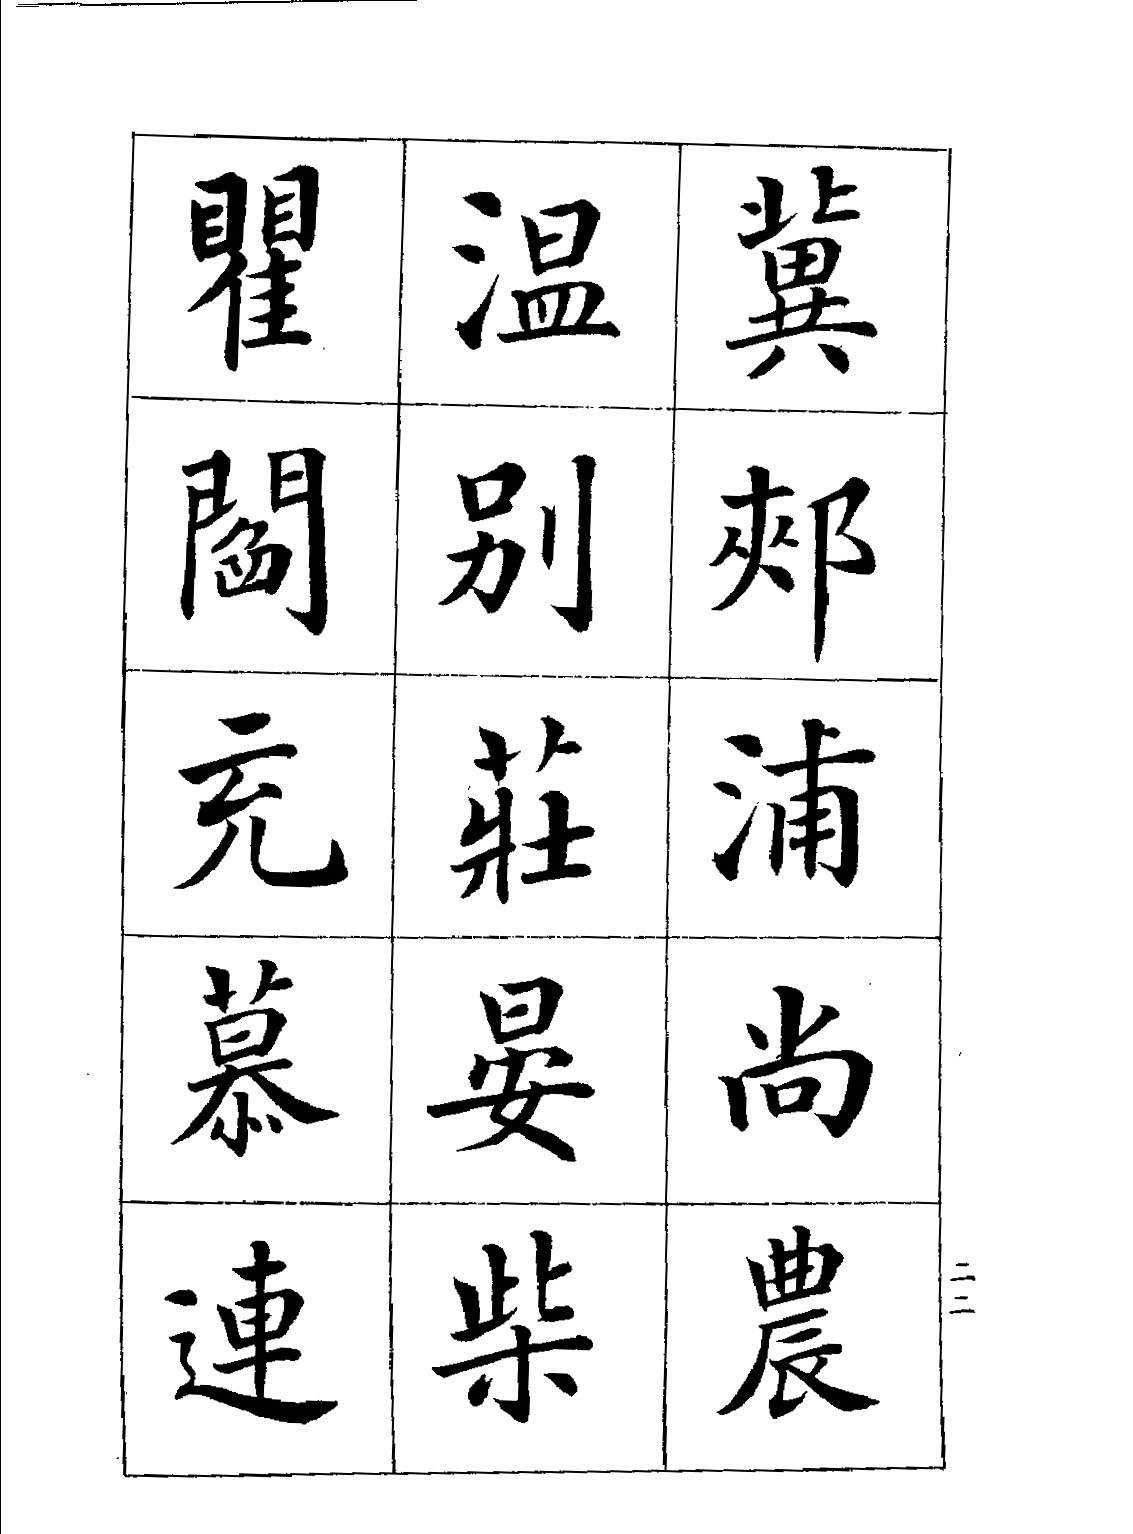 冀郟浦尚農
温别莊晏柴
瞿閻充慕連
二二